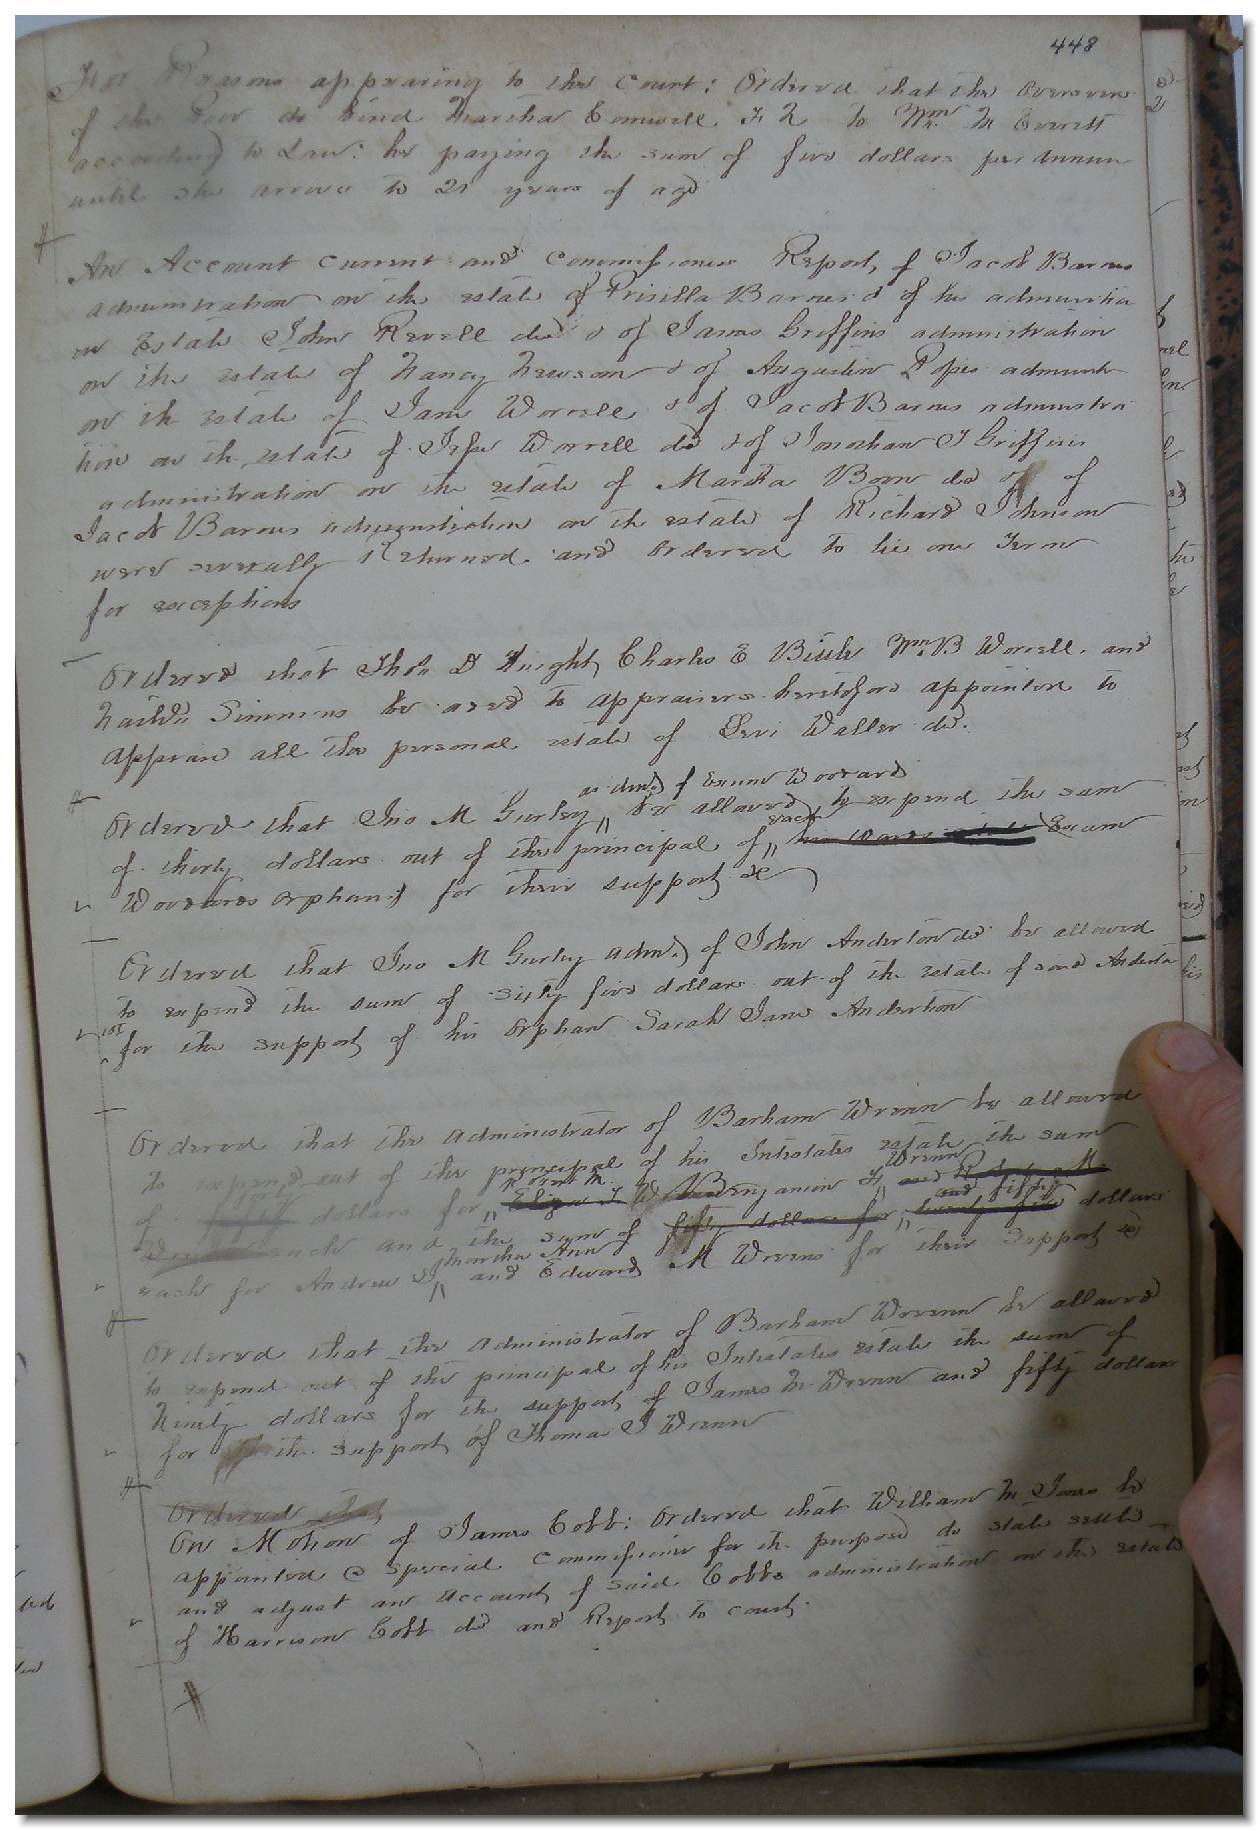 448
For Reasons appearing to the Court: Ordered that the Overseers
of the Poor do bind Martha Cromwell F N to Wm. M Everett
according to Law: he paying the sum of five dollars per annum
until she arrive to 21 years of age
An Account current and Commissioners Report of Jacob Barnes
administration on the estate of Prisilla Barnes & of his administra
on Estate John Revell decd & of James Griffins administration
on the estate of Nancy Newsom & of Augustin Popes administ
on th estate of Jane Worrell & of Jacob Barnes administra
tion on the estate of Jesse Worrell decd & of Jonathan T Griffins
administration on the estate of Martha Boon decd & of
Jacob Barnes administration on the estate of Richard Johnson
were severally Returned and Ordered to lie one Term
for exceptions
Ordered that Thos. D Knight, Charles E Wm. B Worrell, and
Simmons be aded to appraisers heretofore appointed to
appraise all the personal estate of Levi Waller decd.
as admr. of Exum Woodard
Ordered that Jno M Gurley be allowed to expend the sum
each
of thirty dollars out of the principal of Exum
Woodards orphans for their support &c
Ordered that Jno M Gurley admr. of John Anderton decd be allowed
to expend the sum of Sixty five dollars out of the estate of said Anderton
for the support of his orphan Sarah Jane Anderton
Ordered that the Administrator of Barham Wrenn be allowed
to expend out of the principal of his Intestates estate the sum
Robert M. Wrenn
of fifty dollars for Eliza J W Benjamin F and Robert M
and fifty
Wrenn each and the sum of fifty dollars for twenty five dollars
Martha Ann
each for Andrew J and Edward M Wrenns for their support &c
Ordered that the Administrator of Barham Wrenn be allowed
to expend out of the principal of his Intestates estate the sum of
Ninety dollars for the support of James M Wrenn and fifty dollars
for the support of Thomas J Wrenn
Ordered that
On Motion of James Cobb: Ordered that William M Jones be
appointed a Special Commissioner for the purpose do state settle
and adjust an account of said Cobbs administration on the estate
of Harrison Cobb decd and Report to court.